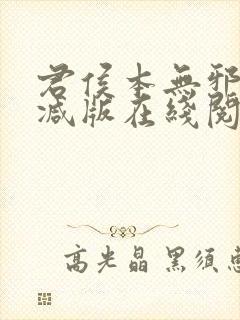 君侯本無邪
减版在綫閱
高光晶 黑須慧